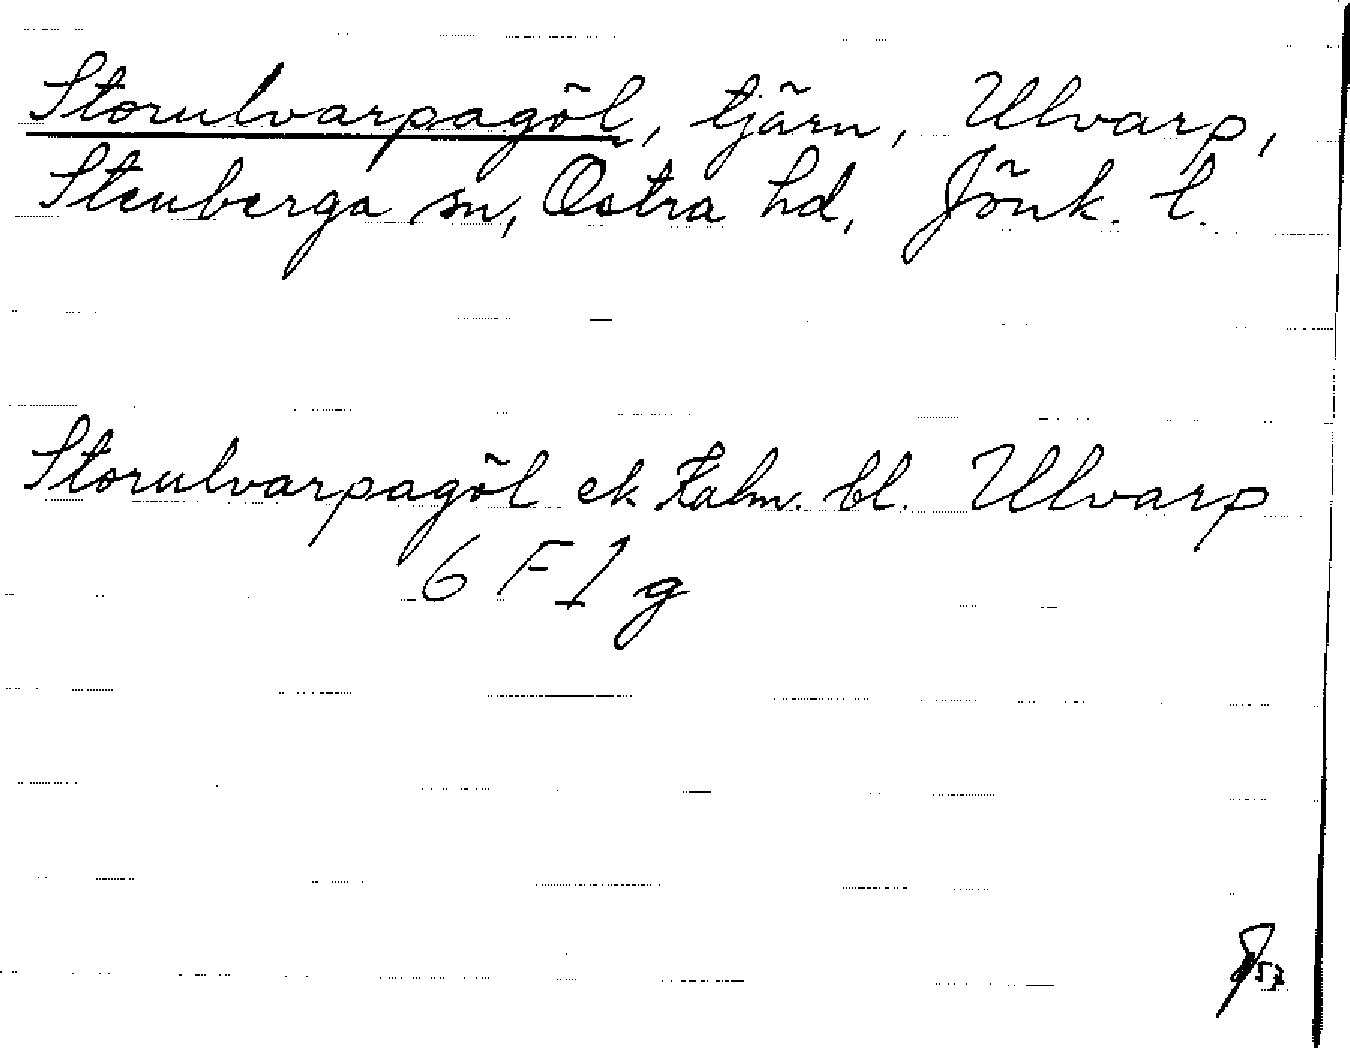 Storulvarpagöl, tjärn, Ulvarp,
Stenberga sn, Östra hd, Jönk. l.
Storulvarpagöl ek Kalm. bl. Ulvarp
6 F 1 g